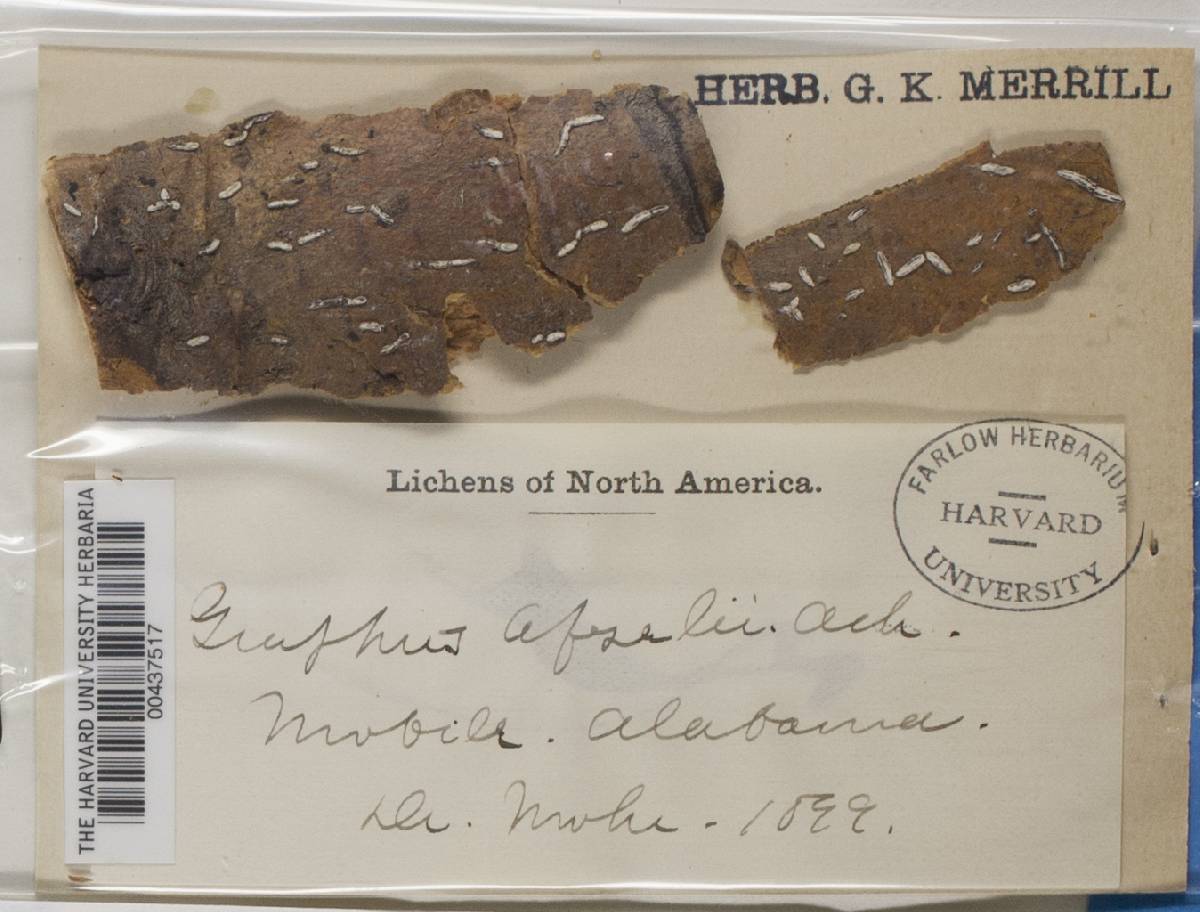 HERB. G. K. MERRILL
Lichens of North America.
FARLOW HERBARIUM
HARVARD
UNIVERSITY
THE HARVARD UNIVERSITY HERBARIA
00437517
Graphis Afzelii. Ach.
Mobile. Alabama.
Dr. Mohr - 1899.